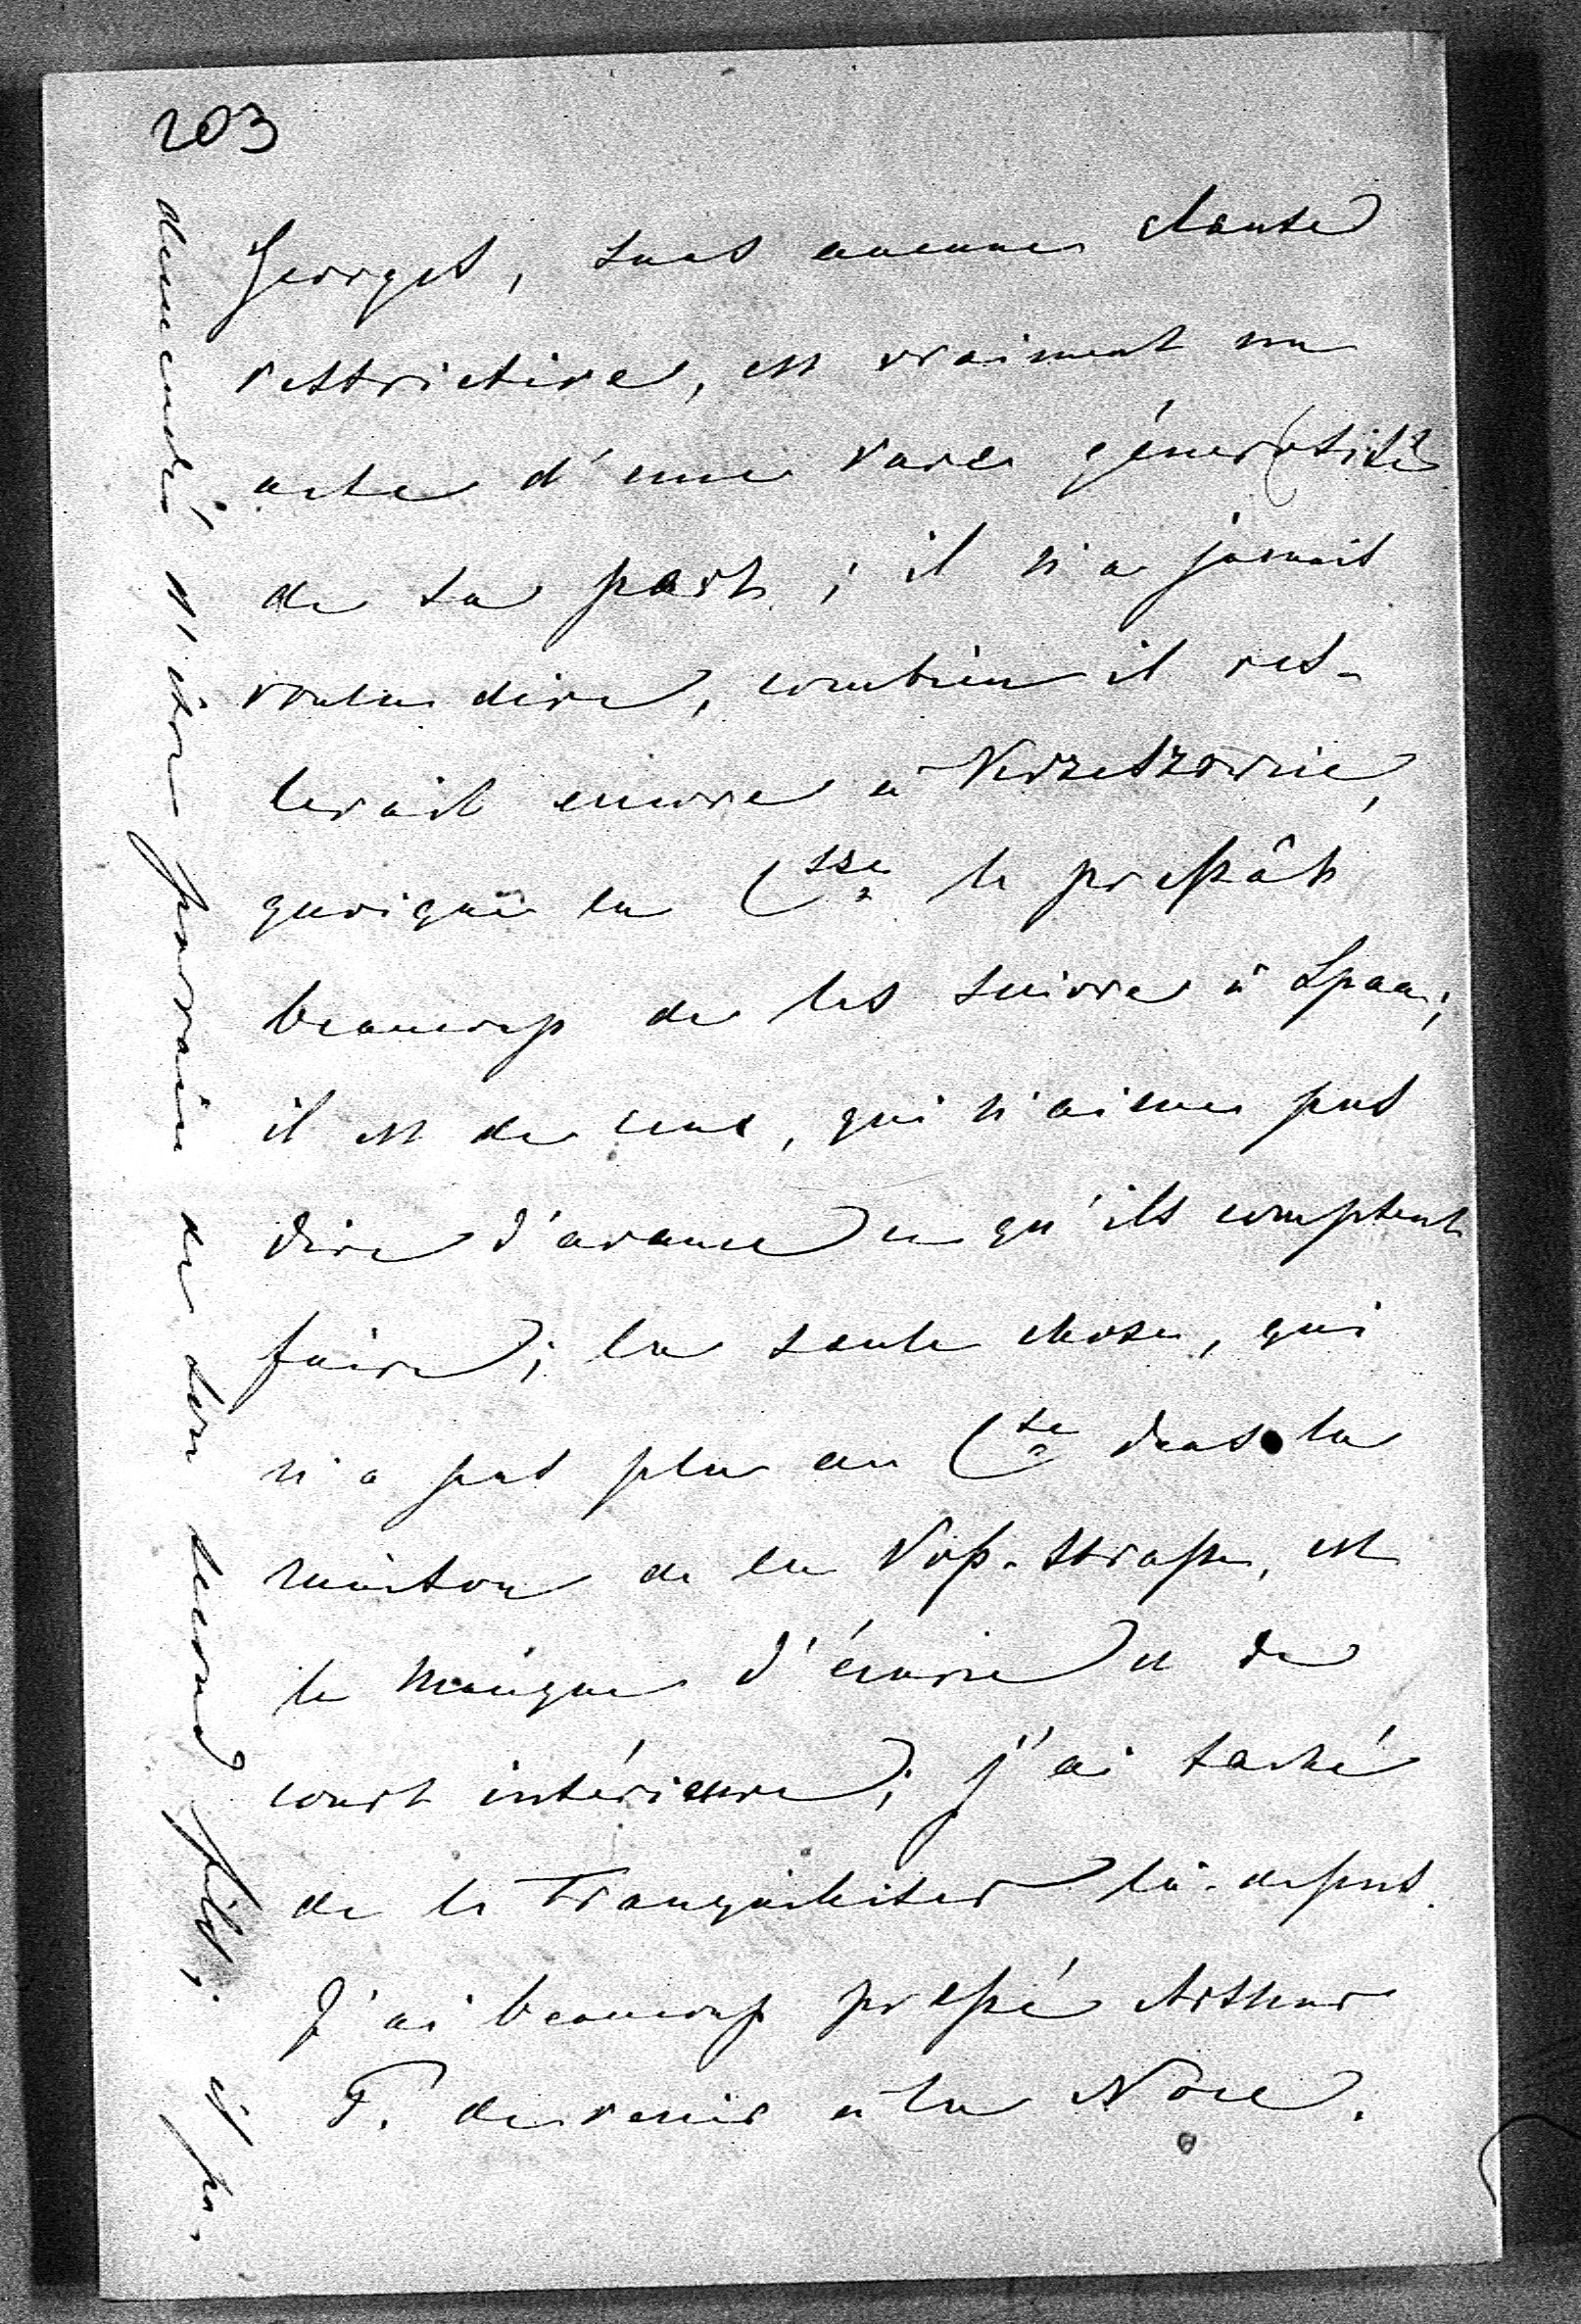 203
Georges, sans aucune clause
restrictive, est vraiment un
acte d'une rare générosité
de sa part; il n'a jamais
voulu dire, combien il res-
terait encore à Krzeszowice,
quoique la Csse le pressât
beaucoup de les suivre à Spaa;
il est de ceux, qui n'aime pas
dire d'avance ce qu'ils comptent
faire; la seule chose, qui
n'a pas plu au Cte dans la
maison de la Voß-strasse, est
le manque d'écurie et de
court intérieure; j'ai taché
de le tranquilliser là-dessus.
J'ai beaucoup pressé Arthur
P. de venir à la Noce.
demandé d'être parrain de son second fils; il pa-